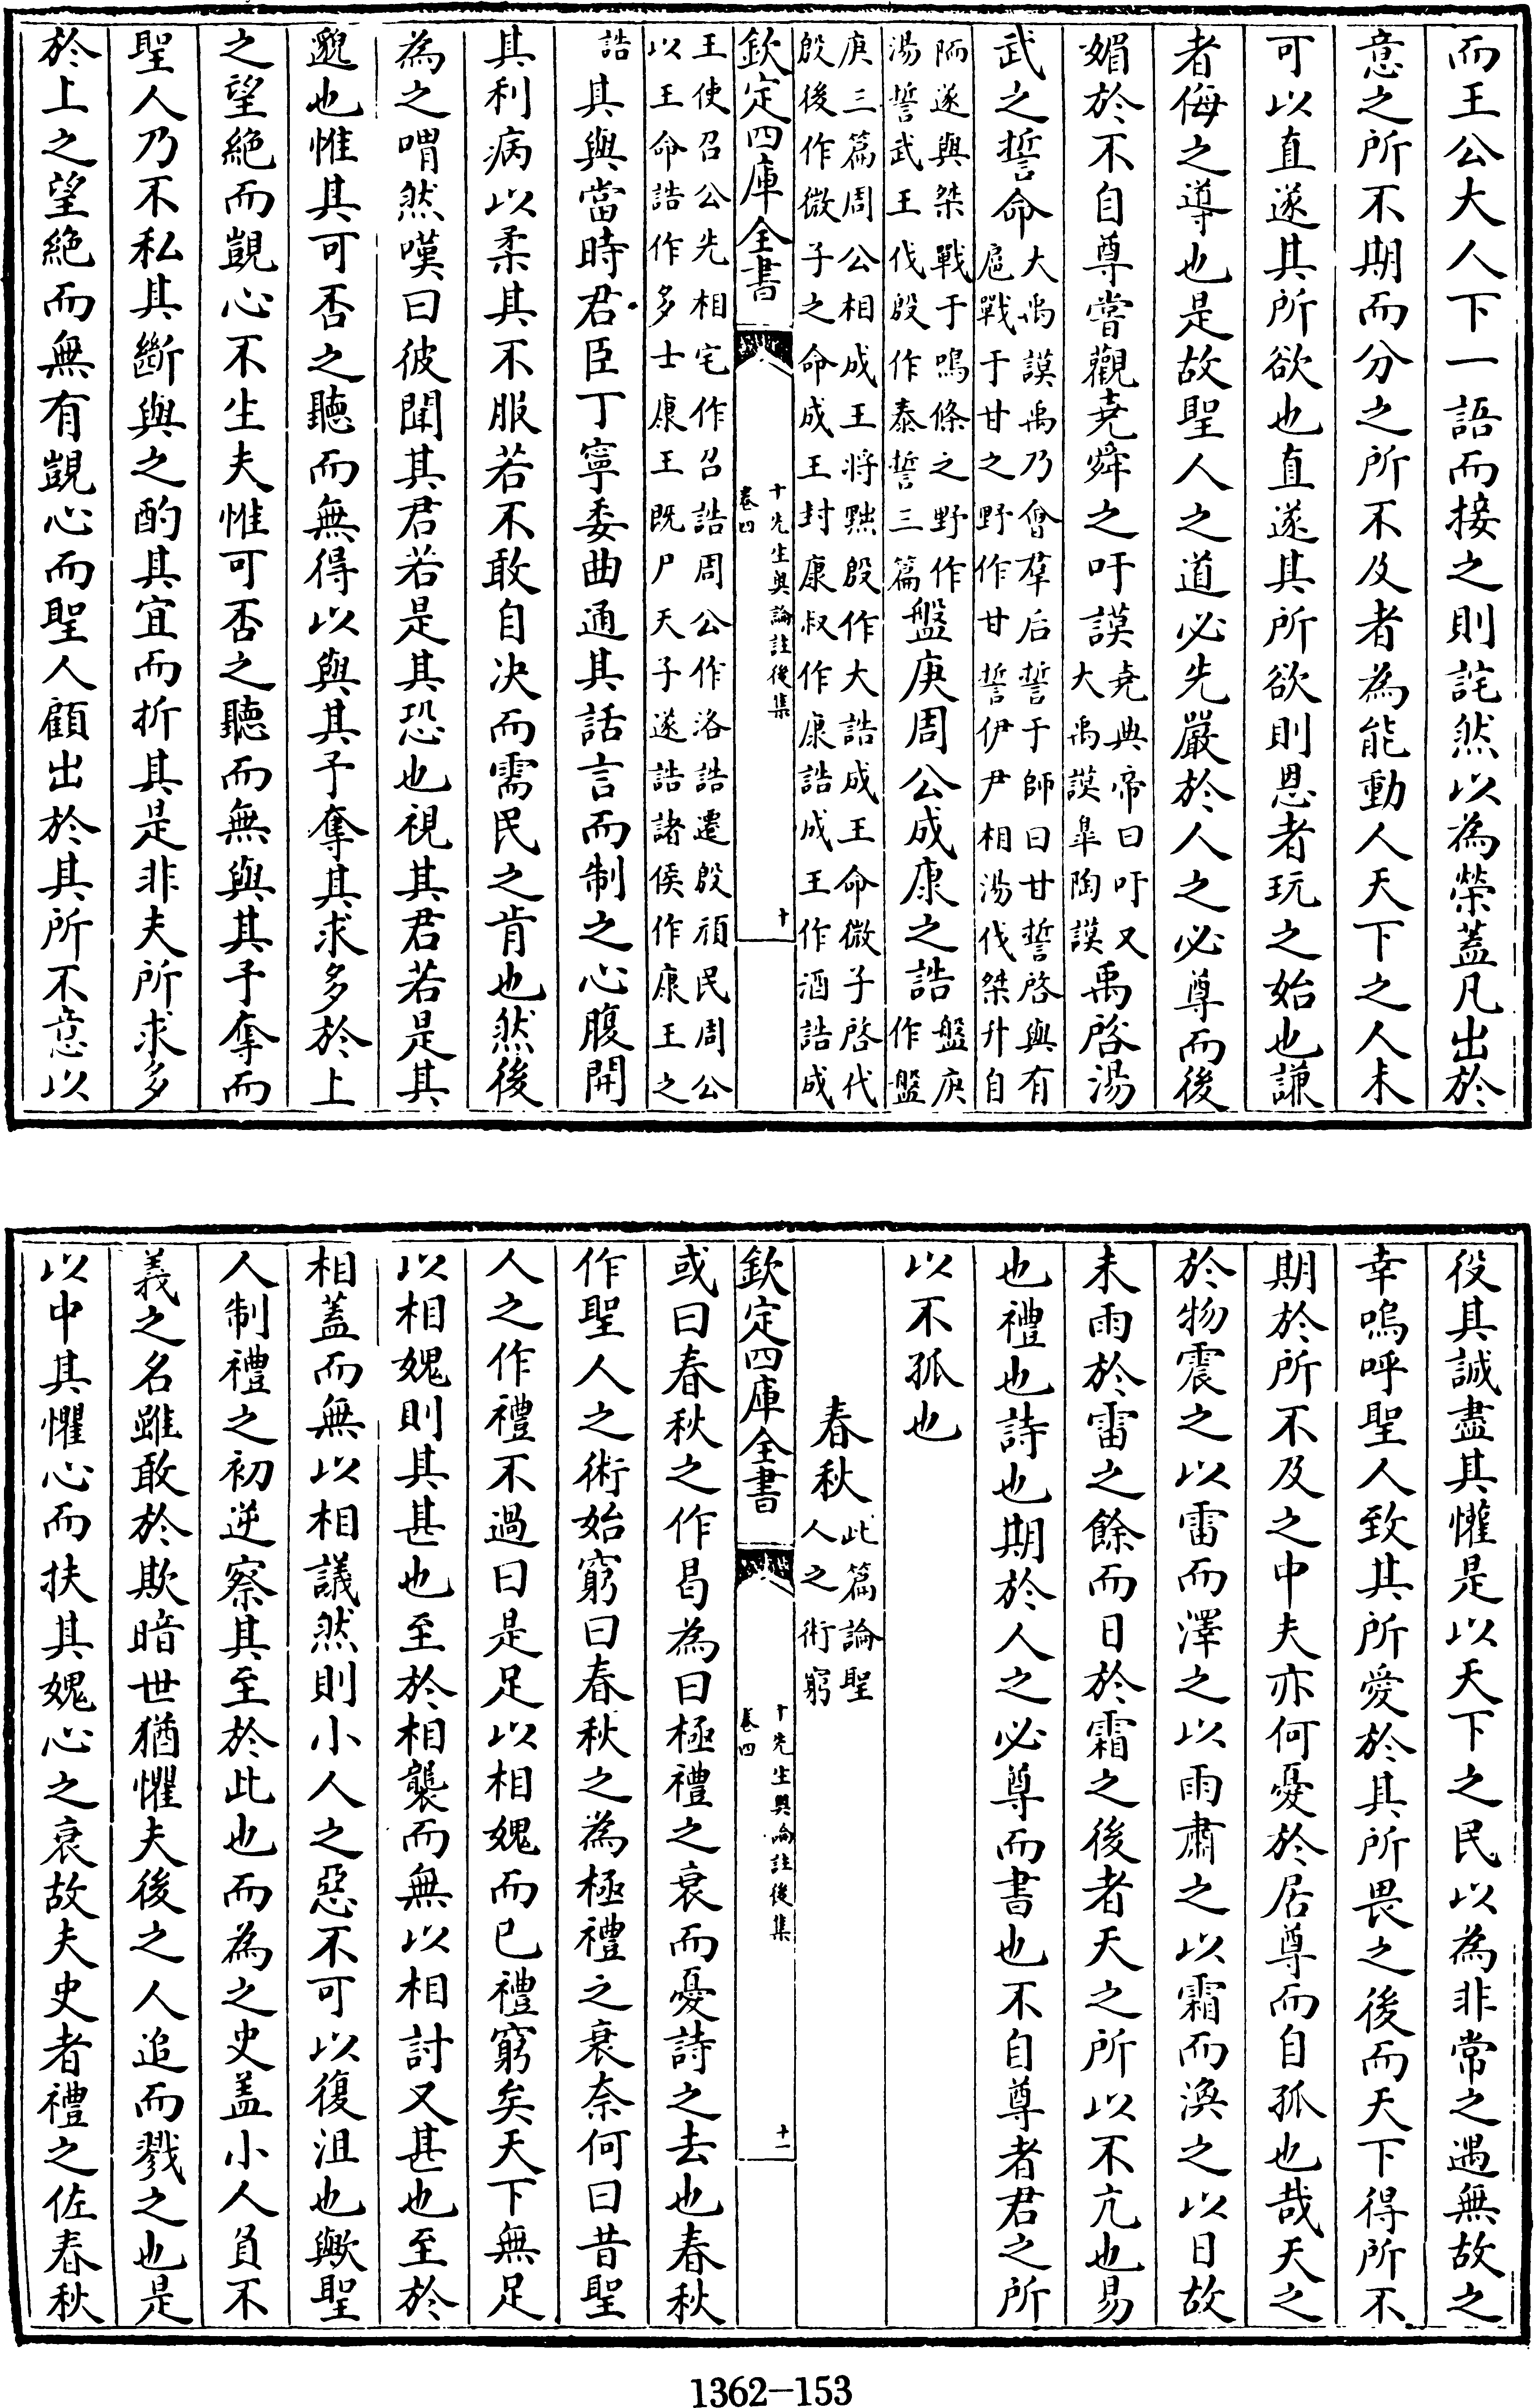 而王公大人下一語而接之則詫然以為榮蓋凡出於
意之所不期而分之所不及者為能動人天下之人未
可以直遂其所欲也直遂其所欲則恩者玩之始也謙
者侮之導也是故聖人之道必先嚴於人之必尊而後
媚於不自尊嘗觀堯舜之吁謨堯典帝曰吁又大禹謨臯陶謨禹啓湯
武之誓命大禹謨禹乃會羣后誓于師曰甘誓啓與有扈戰于甘之野作甘誓伊尹相湯伐桀升自
陑遂與桀戰于鳴條之野作湯誓武王伐殷作泰誓三篇盤庚周公成康之誥盤庚作盤
庚三篇周公相成王將黜殷作大誥成王命微子啓代殷後作微子之命成王封康叔作康誥成王作酒誥成
欽定四庫全書
十先生奧論註後集
卷四
十
王使召公先相宅作召誥周公作洛誥遷殷頑民周公以王命誥作多士康王既尸天子遂誥諸侯作康王之
誥其與當時君臣丁寧委曲通其話言而制之心腹開
其利病以柔其不服若不敢自決而需民之肯也然後
為之喟然嘆曰彼聞其君若是其恐也視其君若是其
邈也惟其可否之聽而無得以與其予奪其求多於上
之望絶而覬心不生夫惟可否之聽而無與其予奪而
聖人乃不私其斷與之酌其宜而折其是非夫所求多
於上之望絶而無有覬心而聖人顧出於其所不意以
役其誠盡其懽是以天下之民以為非常之遇無故之
幸嗚呼聖人致其所愛於其所畏之後而天下得所不
期於所不及之中夫亦何憂於居尊而自孤也哉天之
於物震之以雷而澤之以雨肅之以霜而渙之以日故
未雨於雷之餘而日於霜之後者天之所以不亢也易
也禮也詩也期於人之必尊而書也不自尊者君之所
以不孤也
春秋此篇論聖人之術窮
欽定四庫全書
十先生奧論註後集
卷四
十一
或曰春秋之作曷為曰極禮之衰而憂詩之去也春秋
作聖人之術始窮曰春秋之為極禮之衰奈何曰昔聖
人之作禮不過曰是足以相媿而已禮窮矣天下無足
以相媿則其甚也至於相襲而無以相討又甚也至於
相蓋而無以相議然則小人之惡不可以復沮也歟聖
人制禮之初逆察其至於此也而為之史盖小人負不
義之名雖敢於欺暗世猶懼夫後之人追而戮之也是
以中其懼心而扶其媿心之衰故夫史者禮之佐春秋
1362-153